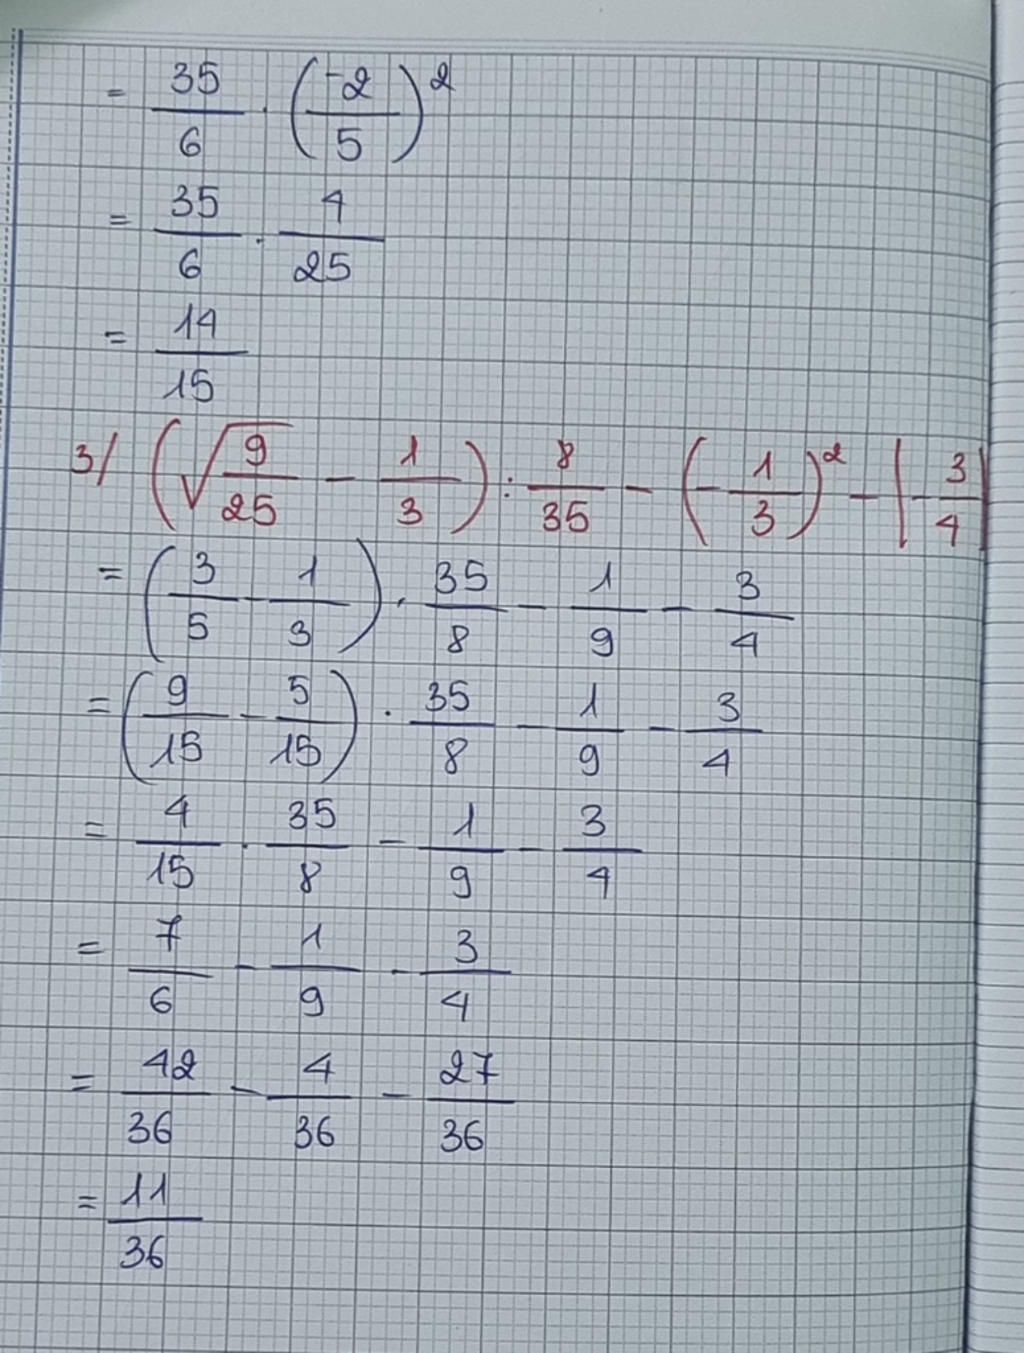 = 35/6 . (-2/5)²
= 35/6 . 4/25
= 14/15
3/ (√(9/25) - 1/3) : 8/35 - (-1/3)² - |-3/4|
= (3/5 - 1/3) . 35/8 - 1/9 - 3/4
= (9/15 - 5/15) . 35/8 - 1/9 - 3/4
= 4/15 . 35/8 - 1/9 - 3/4
= 7/6 - 1/9 - 3/4
= 42/36 - 4/36 - 27/36
= 11/36